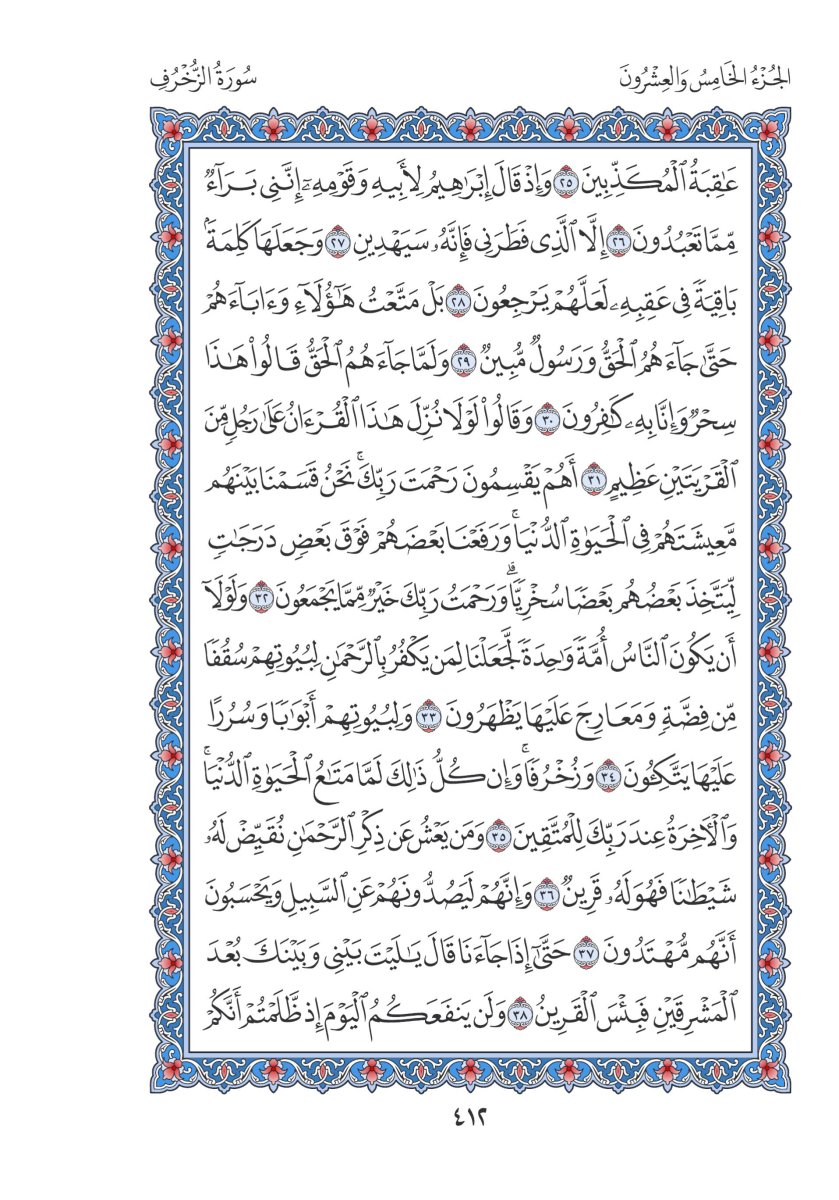 الجُزْءُ الخَامِسُ وَالعِشْرُونَ
سُورَةُ الزُّخْرُفِ
عَٰقِبَةُ ٱلۡمُكَذِّبِينَ ٢٥ وَإِذۡ قَالَ إِبۡرَٰهِيمُ لِأَبِيهِ وَقَوۡمِهِۦٓ إِنَّنِي بَرَآءٞ
مِّمَّا تَعۡبُدُونَ ٢٦ إِلَّا ٱلَّذِي فَطَرَنِي فَإِنَّهُۥ سَيَهۡدِينِ ٢٧ وَجَعَلَهَا كَلِمَةَۢ
بَاقِيَةٗ فِي عَقِبِهِۦ لَعَلَّهُمۡ يَرۡجِعُونَ ٢٨ بَلۡ مَتَّعۡتُ هَٰٓؤُلَآءِ وَءَابَآءَهُمۡ
حَتَّىٰ جَآءَهُمُ ٱلۡحَقُّ وَرَسُولٞ مُّبِينٞ ٢٩ وَلَمَّا جَآءَهُمُ ٱلۡحَقُّ قَالُواْ هَٰذَا
سِحۡرٞ وَإِنَّا بِهِۦ كَٰفِرُونَ ٣٠ وَقَالُواْ لَوۡلَا نُزِّلَ هَٰذَا ٱلۡقُرۡءَانُ عَلَىٰ رَجُلٖ مِّنَ
ٱلۡقَرۡيَتَيۡنِ عَظِيمٍ ٣١ أَهُمۡ يَقۡسِمُونَ رَحۡمَتَ رَبِّكَۚ نَحۡنُ قَسَمۡنَا بَيۡنَهُم
مَّعِيشَتَهُمۡ فِي ٱلۡحَيَوٰةِ ٱلدُّنۡيَاۚ وَرَفَعۡنَا بَعۡضَهُمۡ فَوۡقَ بَعۡضٖ دَرَجَٰتٖ
لِّيَتَّخِذَ بَعۡضُهُم بَعۡضٗا سُخۡرِيّٗاۗ وَرَحۡمَتُ رَبِّكَ خَيۡرٞ مِّمَّا يَجۡمَعُونَ ٣٢ وَلَوۡلَآ
أَن يَكُونَ ٱلنَّاسُ أُمَّةٗ وَٰحِدَةٗ لَّجَعَلۡنَا لِمَن يَكۡفُرُ بِٱلرَّحۡمَٰنِ لِبُيُوتِهِمۡ سُقُفٗا
مِّن فِضَّةٖ وَمَعَارِجَ عَلَيۡهَا يَظۡهَرُونَ ٣٣ وَلِبُيُوتِهِمۡ أَبۡوَٰبٗا وَسُرُرًا
عَلَيۡهَا يَتَّكِـُٔونَ ٣٤ وَزُخۡرُفٗاۚ وَإِن كُلُّ ذَٰلِكَ لَمَّا مَتَٰعُ ٱلۡحَيَوٰةِ ٱلدُّنۡيَاۚ
وَٱلۡأٓخِرَةُ عِندَ رَبِّكَ لِلۡمُتَّقِينَ ٣٥ وَمَن يَعۡشُ عَن ذِكۡرِ ٱلرَّحۡمَٰنِ نُقَيِّضۡ لَهُۥ
شَيۡطَٰنٗا فَهُوَ لَهُۥ قَرِينٞ ٣٦ وَإِنَّهُمۡ لَيَصُدُّونَهُمۡ عَنِ ٱلسَّبِيلِ وَيَحۡسَبُونَ
أَنَّهُم مُّهۡتَدُونَ ٣٧ حَتَّىٰٓ إِذَا جَآءَنَا قَالَ يَٰلَيۡتَ بَيۡنِي وَبَيۡنَكَ بُعۡدَ
ٱلۡمَشۡرِقَيۡنِ فَبِئۡسَ ٱلۡقَرِينُ ٣٨ وَلَن يَنفَعَكُمُ ٱلۡيَوۡمَ إِذ ظَّلَمۡتُمۡ أَنَّكُمۡ
٤١٢